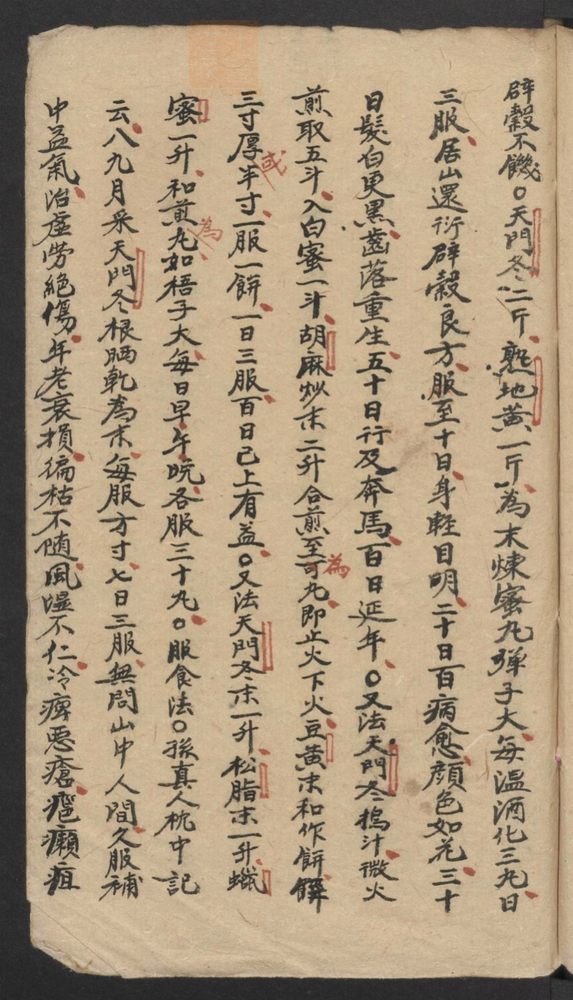 辟穀不饑○天門冬二斤、熟地黃一斤、為末煉蜜丸彈子大、每温酒化三丸、日
三服、居山還行辟穀良方、服至十日、身輕目明、二十日百病愈、顏色如花、三十
日髮白更黑、齒落重生、五十日行及奔馬、百日延年○又法天門冬搗汁、微火
煎取五斗、入白蜜一斗、胡麻炒末二升、合煎至可為丸、即止火、下火豆黃末和作餅、餅
三寸厚半寸、或一服一餅、一日三服、百日已上有益○又法天門冬末一升、松脂末一升、蠟
蜜一升、和煎為丸如梧子大、每日早午晚各服三十丸○服食法○孫真人枕中記
云、八九月采天門冬根晒乾為末、每服方寸七日三服、無問山中人間、久服補
中益氣、治虛勞絶傷、年老衰損、偏枯不随、風濕不仁、冷痹惡瘡、癰疽癩疽